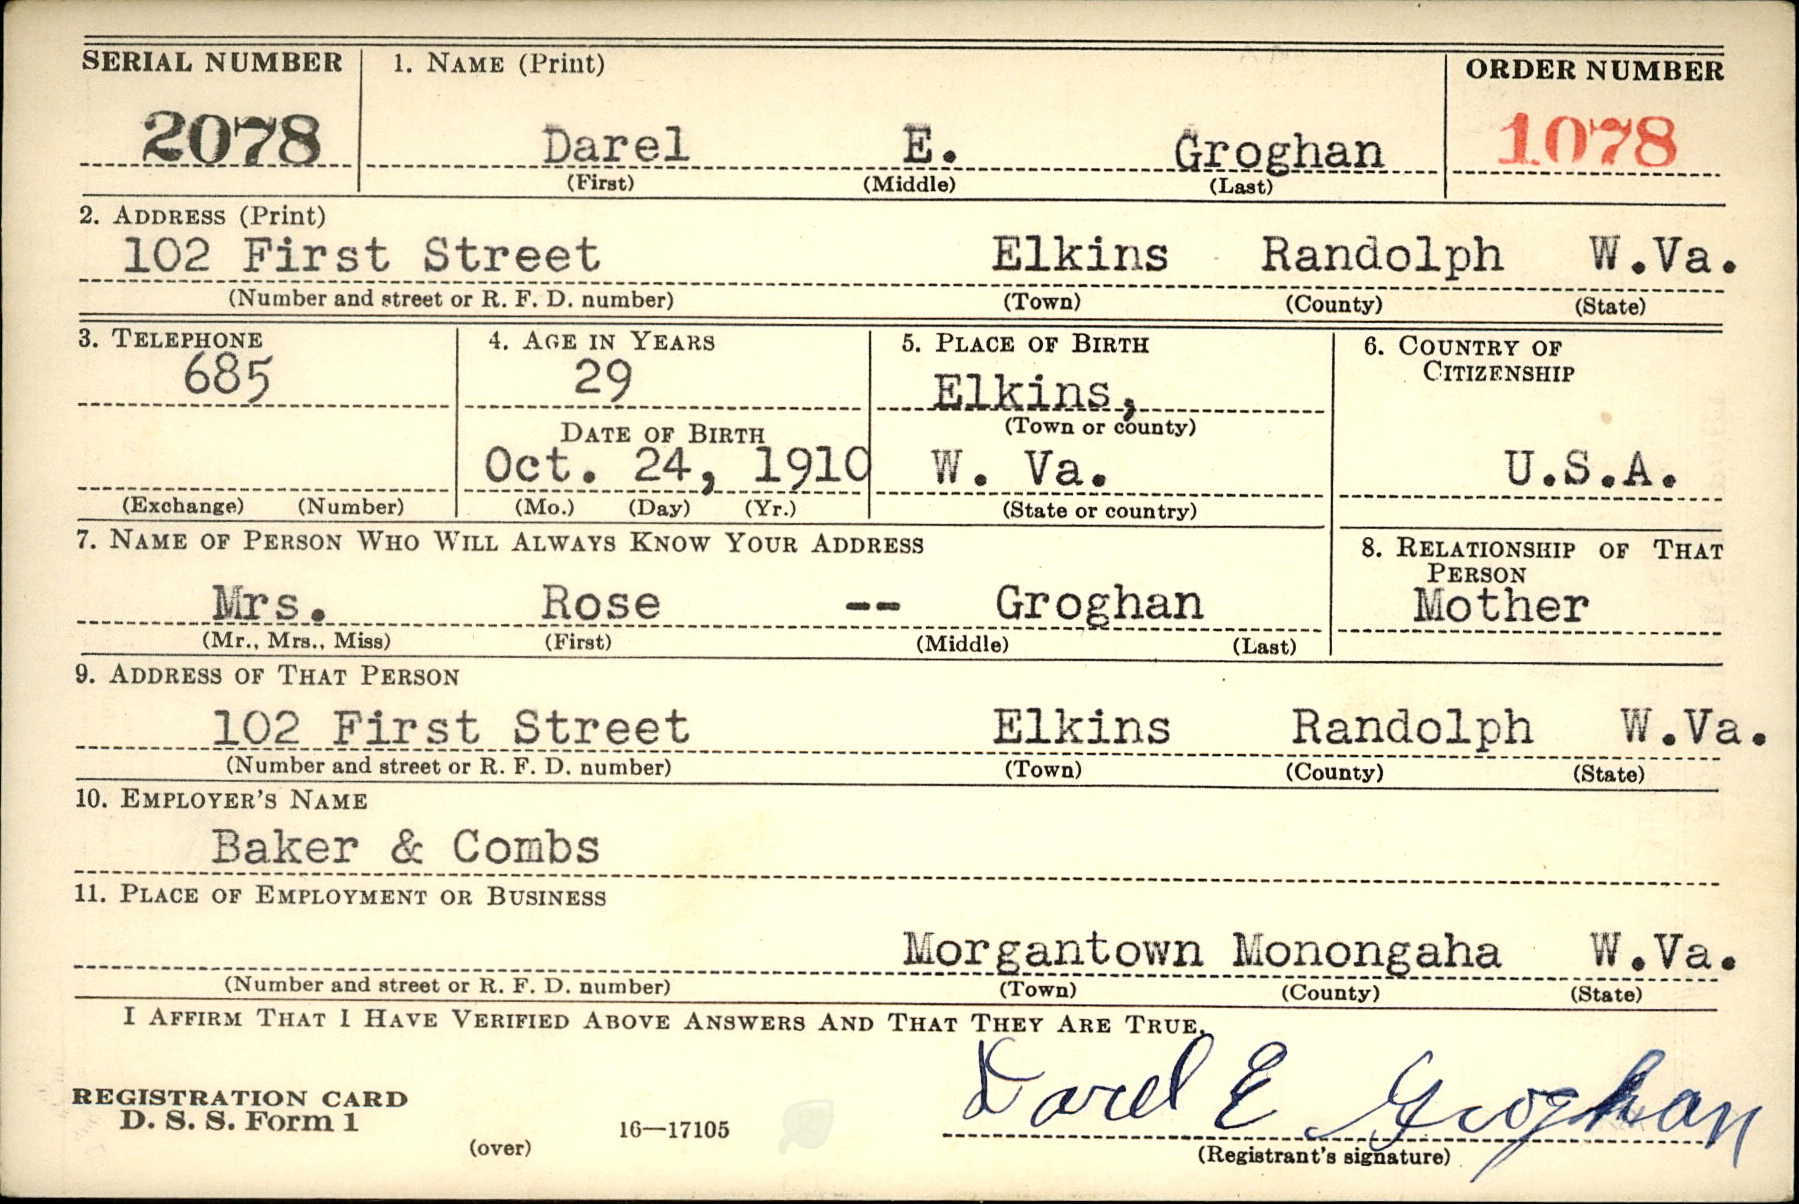 SERIAL NUMBER 1. NAME (Print) ORDER NUMBER
2078 Darel E. Groghan 1078
(First) (Middle) (Last)
2. ADDRESS (Print)
102 First Street Elkins Randolph W.Va.
(Number and street or R. F. D. number) (Town) (County) (State)
3. TELEPHONE 4. AGE IN YEARS 5. PLACE OF BIRTH 6. COUNTRY OF
CITIZENSHIP
685 29 Elkins,
(Town or county)
DATE OF BIRTH
Oct. 24, 1910 W. Va. U.S.A.
(Exchange) (Number) (Mo.) (Day) (Yr.) (State or country)
7. NAME OF PERSON WHO WILL ALWAYS KNOW YOUR ADDRESS 8. RELATIONSHIP OF THAT
PERSON
Mrs. Rose -- Groghan Mother
(Mr., Mrs., Miss) (First) (Middle) (Last)
9. ADDRESS OF THAT PERSON
102 First Street Elkins Randolph W.Va.
(Number and street or R. F. D. number) (Town) (County) (State)
10. EMPLOYER'S NAME
Baker & Combs
11. PLACE OF EMPLOYMENT OR BUSINESS
Morgantown Monongaha W.Va.
(Number and street or R. F. D. number) (Town) (County) (State)
I AFFIRM THAT I HAVE VERIFIED ABOVE ANSWERS AND THAT THEY ARE TRUE.
Darel E Groghan
REGISTRATION CARD
D. S. S. Form 1
(over) 16—17105 (Registrant's signature)